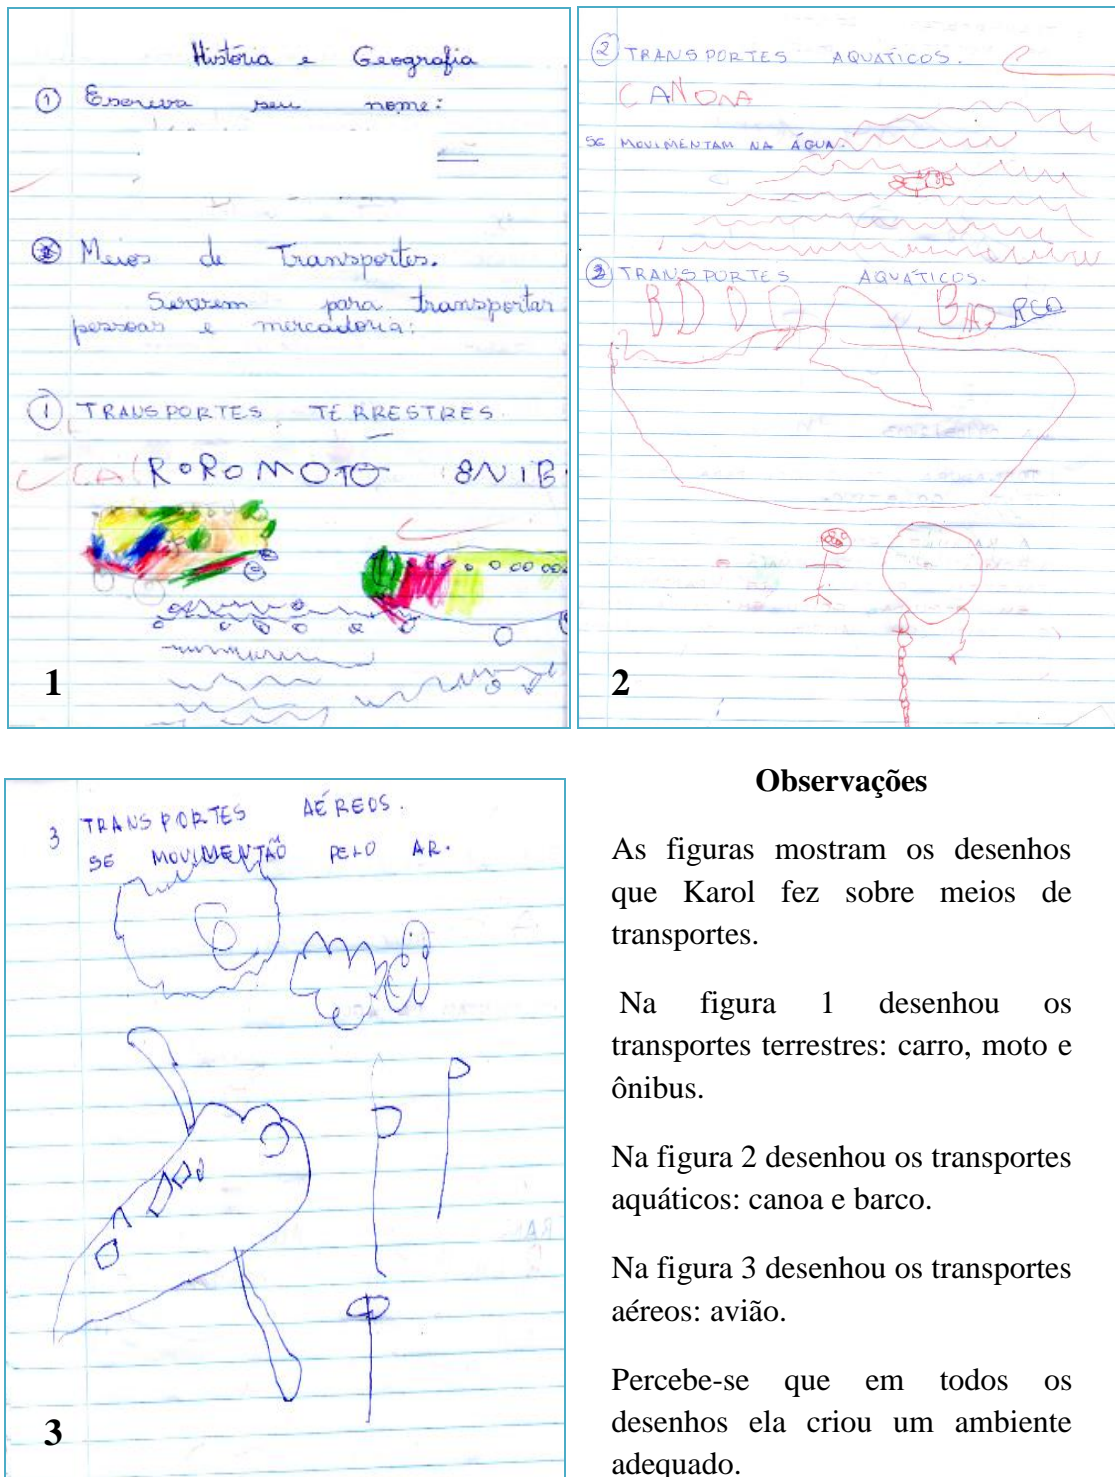 História e Geografia
1 Escreva seu nome:
2 Meios de Transportes.
Servem para transportar
pessoas e mercadoria:
1 TRANSPORTES TERRESTRES.
CARRO MOTO
1
2 TRANSPORTES AQUATICOS.
CANOA
SE MOVIMENTAM NA ÁGUA.
2 TRANSPORTES AQUATICOS.
BARCO
2
3 TRANSPORTES AÉREOS.
SE MOVIMENTÃO PELO AR.
3
Observações
As figuras mostram os desenhos
que Karol fez sobre meios de
transportes.
Na figura 1 desenhou os
transportes terrestres: carro, moto e
ônibus.
Na figura 2 desenhou os transportes
aquáticos: canoa e barco.
Na figura 3 desenhou os transportes
aéreos: avião.
Percebe-se que em todos os
desenhos ela criou um ambiente
adequado.